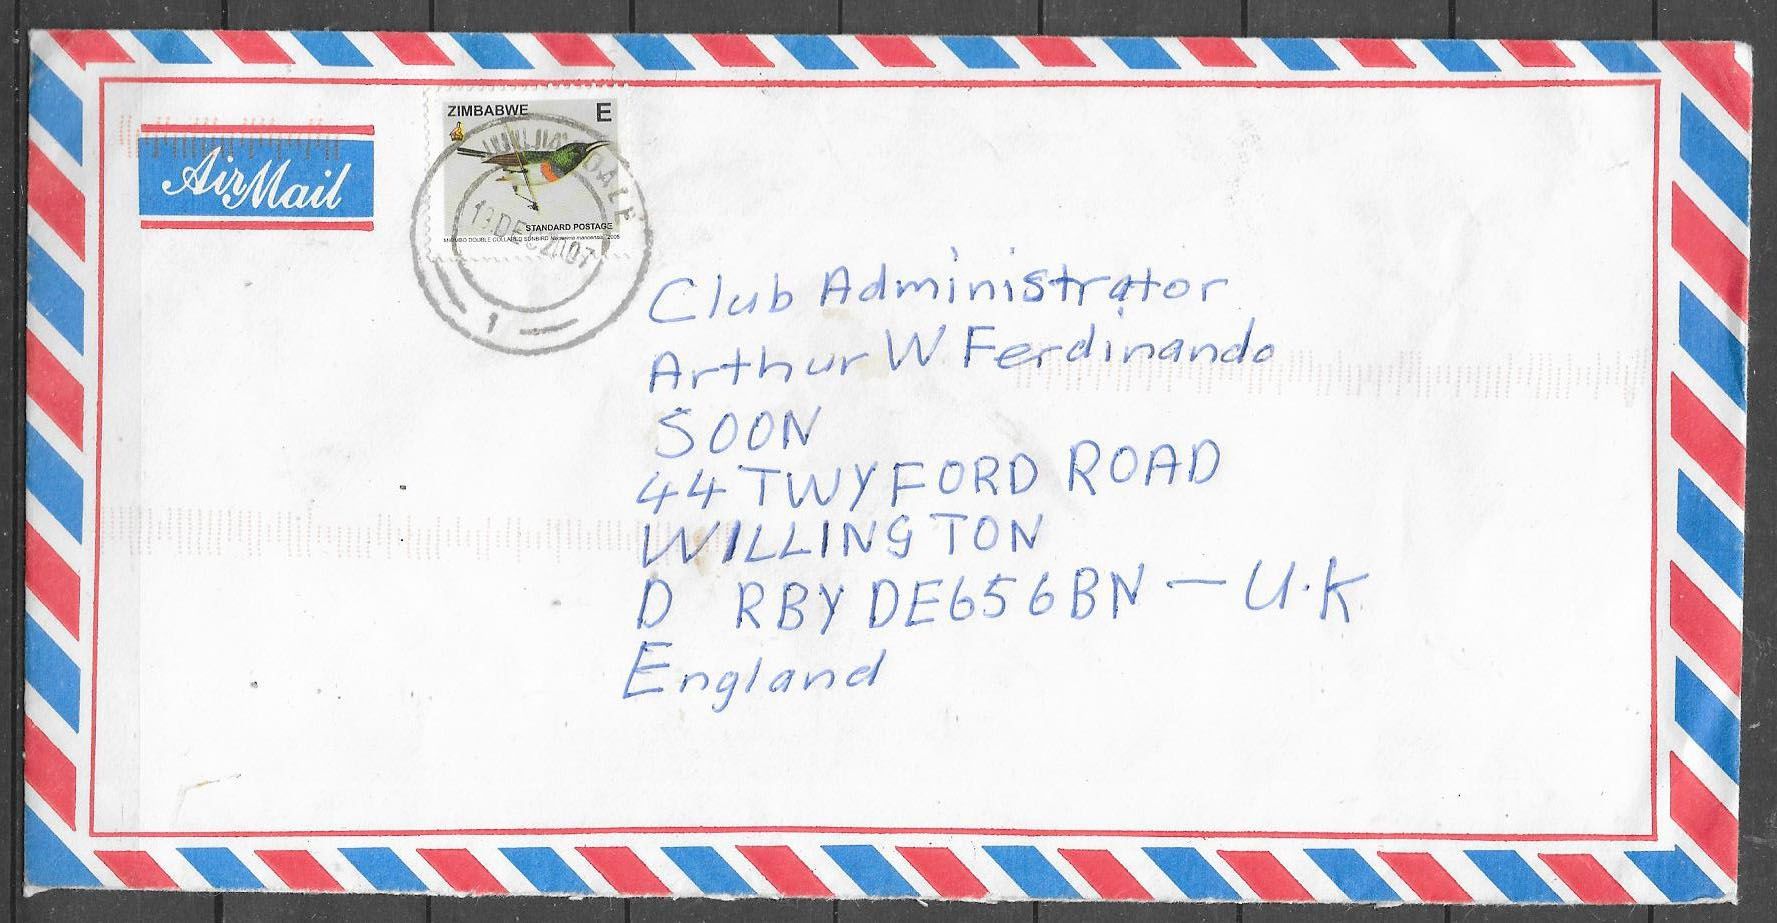 ZIMBABWE E
Air Mail
STANDARD POSTAGE
DOUBLE COLLARED SUNBIRD
DALE
DEC 2007
1
Club Administrator
Arthur W Ferdinando
SOON
44 TWYFORD ROAD
WILLINGTON
D RBY DE656BN - U.K
England